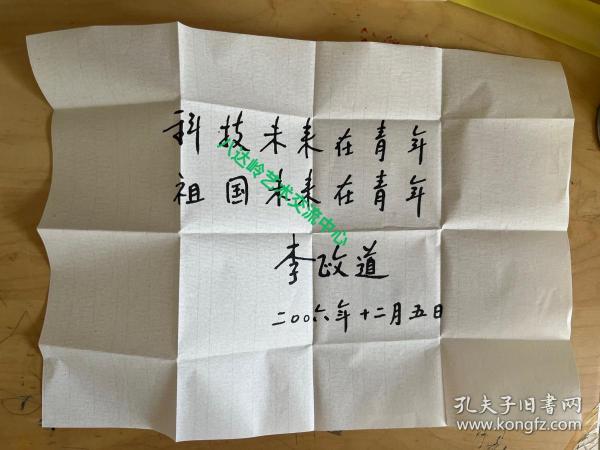 科技未来在青年
祖国未来在青年
李政道
二〇〇六年十二月五日
八达岭艺术交流中心
孔夫子旧书网
www.kongfz.com